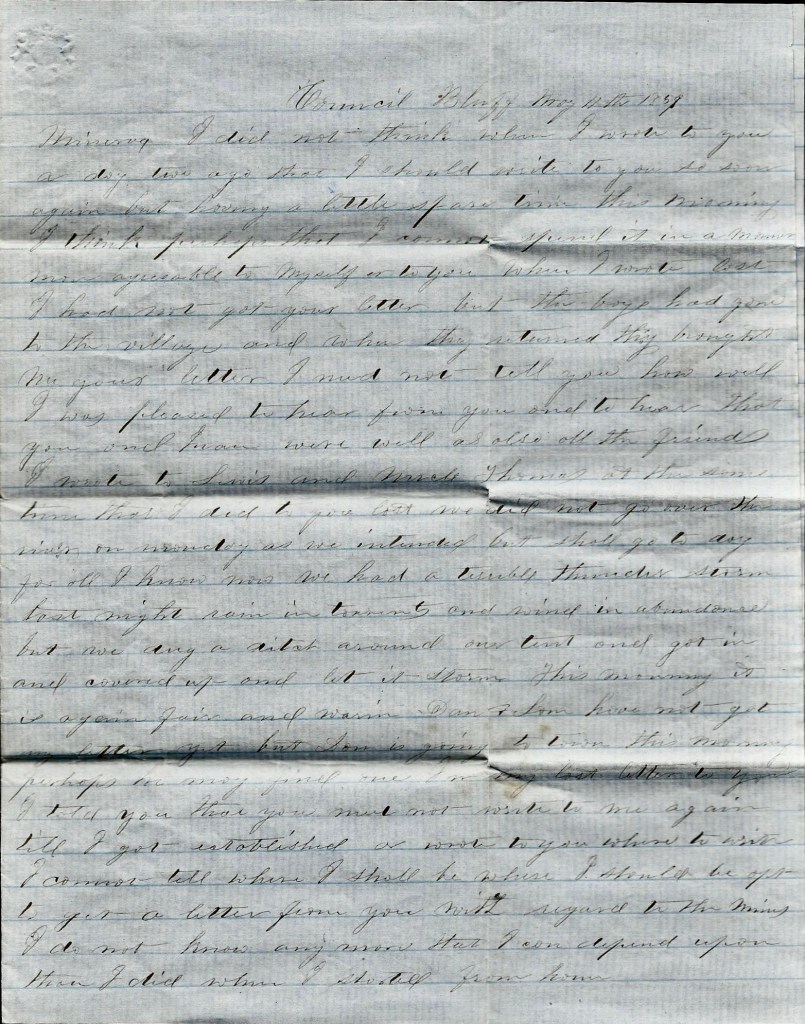 Council Bluffs May 11th 1859
Minerva I did not think when I wrote to you
a day two ago that I should write to you so soon
again but having a little spare time this morning
I think perhaps that I cannot spend it in a manner
more agreeable to myself or to you When I wrote last
I had not got your letter but the boys had gone
to the village and when they returned they brought
me your letter I need not tell you how well
I was pleased to hear from you and to hear that
you and were well as also all the friends
I wrote to Lewis and Uncle Thomas at the same
time that I did to you last we did not go over the
river on monday as we intended but shall go to day
for all I know now We had a terrible thunder storm
last night rain in torrents and wind in abundance
but we dug a ditch around our tent and got in
and covered up and let it storm This morning it
is again fair and warm Dan & have not got
letter yet but is going to town this morning
perhaps he may find one In my last letter to you
I told you that you must not write to me again
till I got established or wrote to you where to write
I cannot tell where I shall be where I should be apt
to get a letter from you With regard to the mines
I do not know any more that I can depend upon
than I did when I started from home